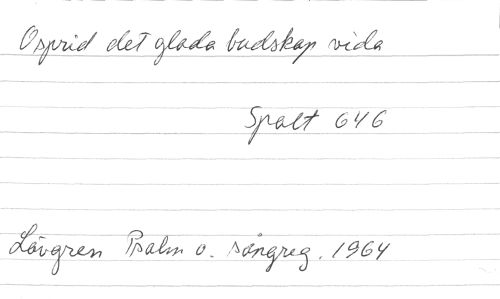 Osprid det glada budskap vida
Spalt 646
Lövgren Psalm o. sångreg. 1964